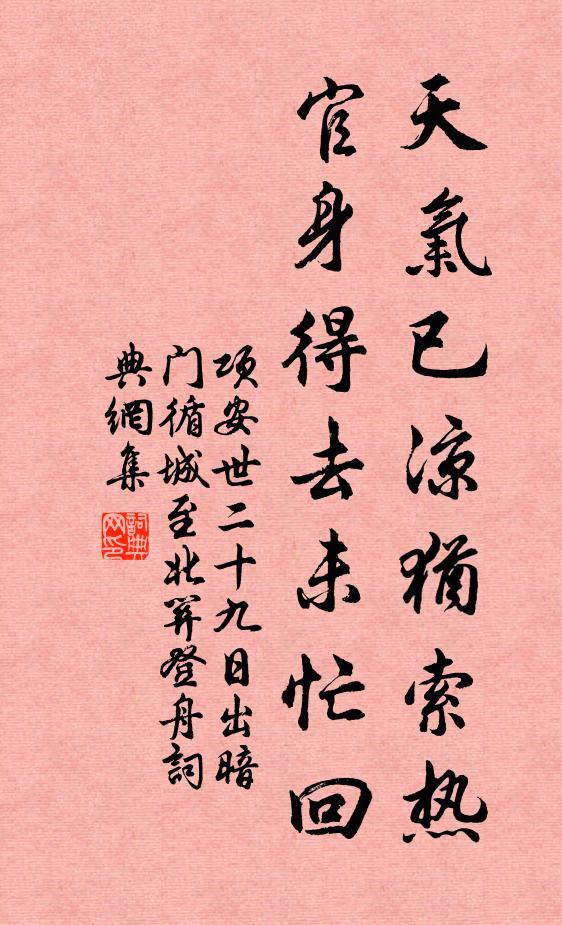 天氣已涼猶索热
官身得去未忙回
项安世二十九日出暗
门循城至北箅登舟詞
典網集
詞典网印